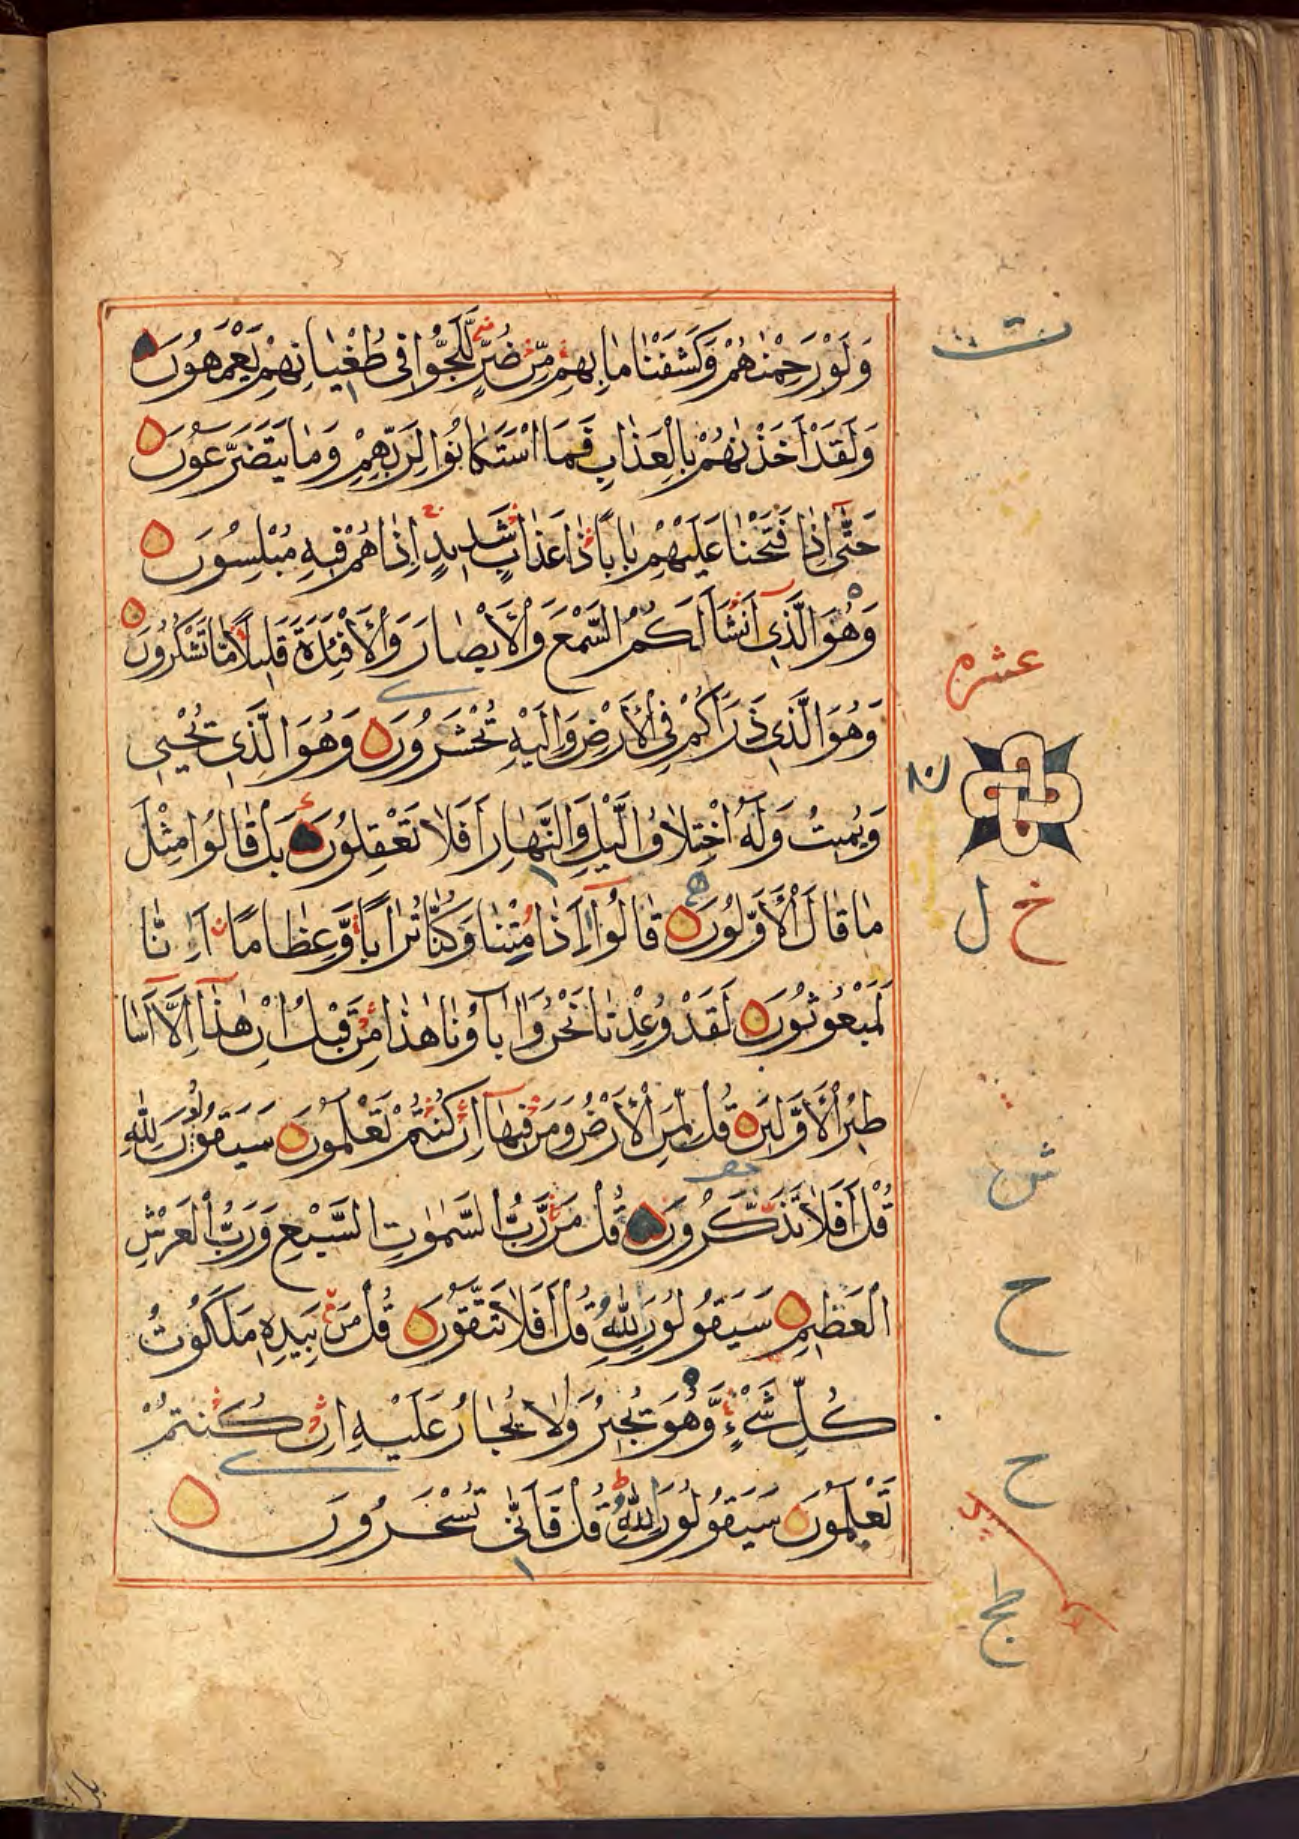 وَلَوْ رَحِمْنٰهُمْ وَكَشَفْنَا مَا بِهِمْ مِّنْ ضُرٍّ لَّلَجُّوْا فِی طُغْيَانِهِمْ يَعْمَهُونَ
وَلَقَدْ اَخَذْنٰهُمْ بِالْعَذَابِ فَمَا اسْتَكَانُوْا لِرَبِّهِمْ وَمَا يَتَضَرَّعُونَ
حَتّٰۤی اِذَا فَتَحْنَا عَلَيْهِمْ بَابًا ذَا عَذَابٍ شَدِيدٍ اِذَا هُمْ فِيهِ مُبْلِسُونَ
وَهُوَ الَّذِیۤ اَنْشَاَ لَكُمُ السَّمْعَ وَالْاَبْصَارَ وَالْاَفْئِدَةَ قَلِيلًا مَّا تَشْكُرُونَ
وَهُوَ الَّذِی ذَرَاَكُمْ فِی الْاَرْضِ وَاِلَيْهِ تُحْشَرُونَ وَهُوَ الَّذِی يُحْيِی
وَيُمِيتُ وَلَهُ اخْتِلَافُ الَّيْلِ وَالنَّهَارِ اَفَلَا تَعْقِلُونَ بَلْ قَالُوْا مِثْلَ
مَا قَالَ الْاَوَّلُونَ قَالُوْۤا ءَاِذَا مِتْنَا وَكُنَّا تُرَابًا وَّعِظَامًا ءَاِنَّا
لَمَبْعُوثُونَ لَقَدْ وُعِدْنَا نَحْنُ وَاٰبَآؤُنَا هٰذَا مِنْ قَبْلُ اِنْ هٰذَاۤ اِلَّاۤ اَسَا
طِيرُ الْاَوَّلِينَ قُلْ لِّمَنِ الْاَرْضُ وَمَنْ فِيهَاۤ اِنْ كُنْتُمْ تَعْلَمُونَ سَيَقُولُونَ لِلّٰهِ
قُلْ اَفَلَا تَذَكَّرُونَ قُلْ مَنْ رَّبُّ السَّمٰوٰتِ السَّبْعِ وَرَبُّ الْعَرْشِ
الْعَظِيمِ سَيَقُولُونَ لِلّٰهِ قُلْ اَفَلَا تَتَّقُونَ قُلْ مَنْ بِيَدِهٖ مَلَكُوتُ
كُلِّ شَیْءٍ وَّهُوَ يُجِيرُ وَلَا يُجَارُ عَلَيْهِ اِنْ كُنْتُمْ
تَعْلَمُونَ سَيَقُولُونَ لِلّٰهِ قُلْ فَاَنّٰی تُسْحَرُونَ
ت
عشر
خ ل
ش
ح
ح